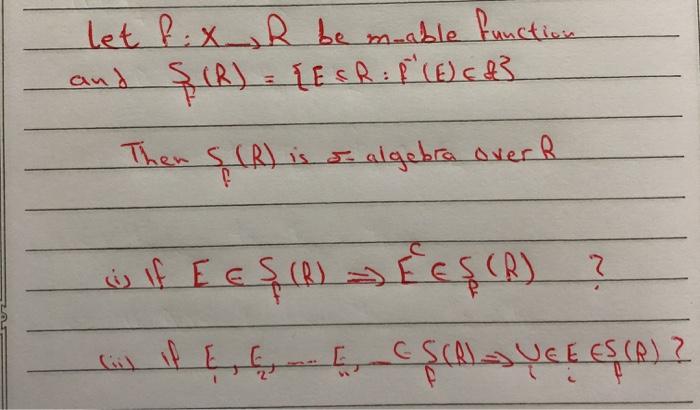 Let f: X → R be m-able function
and S_f(R) = {E ⊂ R : f⁻¹(E) ⊂ 𝒜}
Then S_f(R) is σ-algebra over R
(i) If E ∈ S_f(R) ⇒ Eᶜ ∈ S_f(R) ?
(ii) if E₁, E₂, ... Eₙ, ... ∈ S_f(R) ⇒ ∪ᵢ∈ Eᵢ ∈ S_f(R) ?